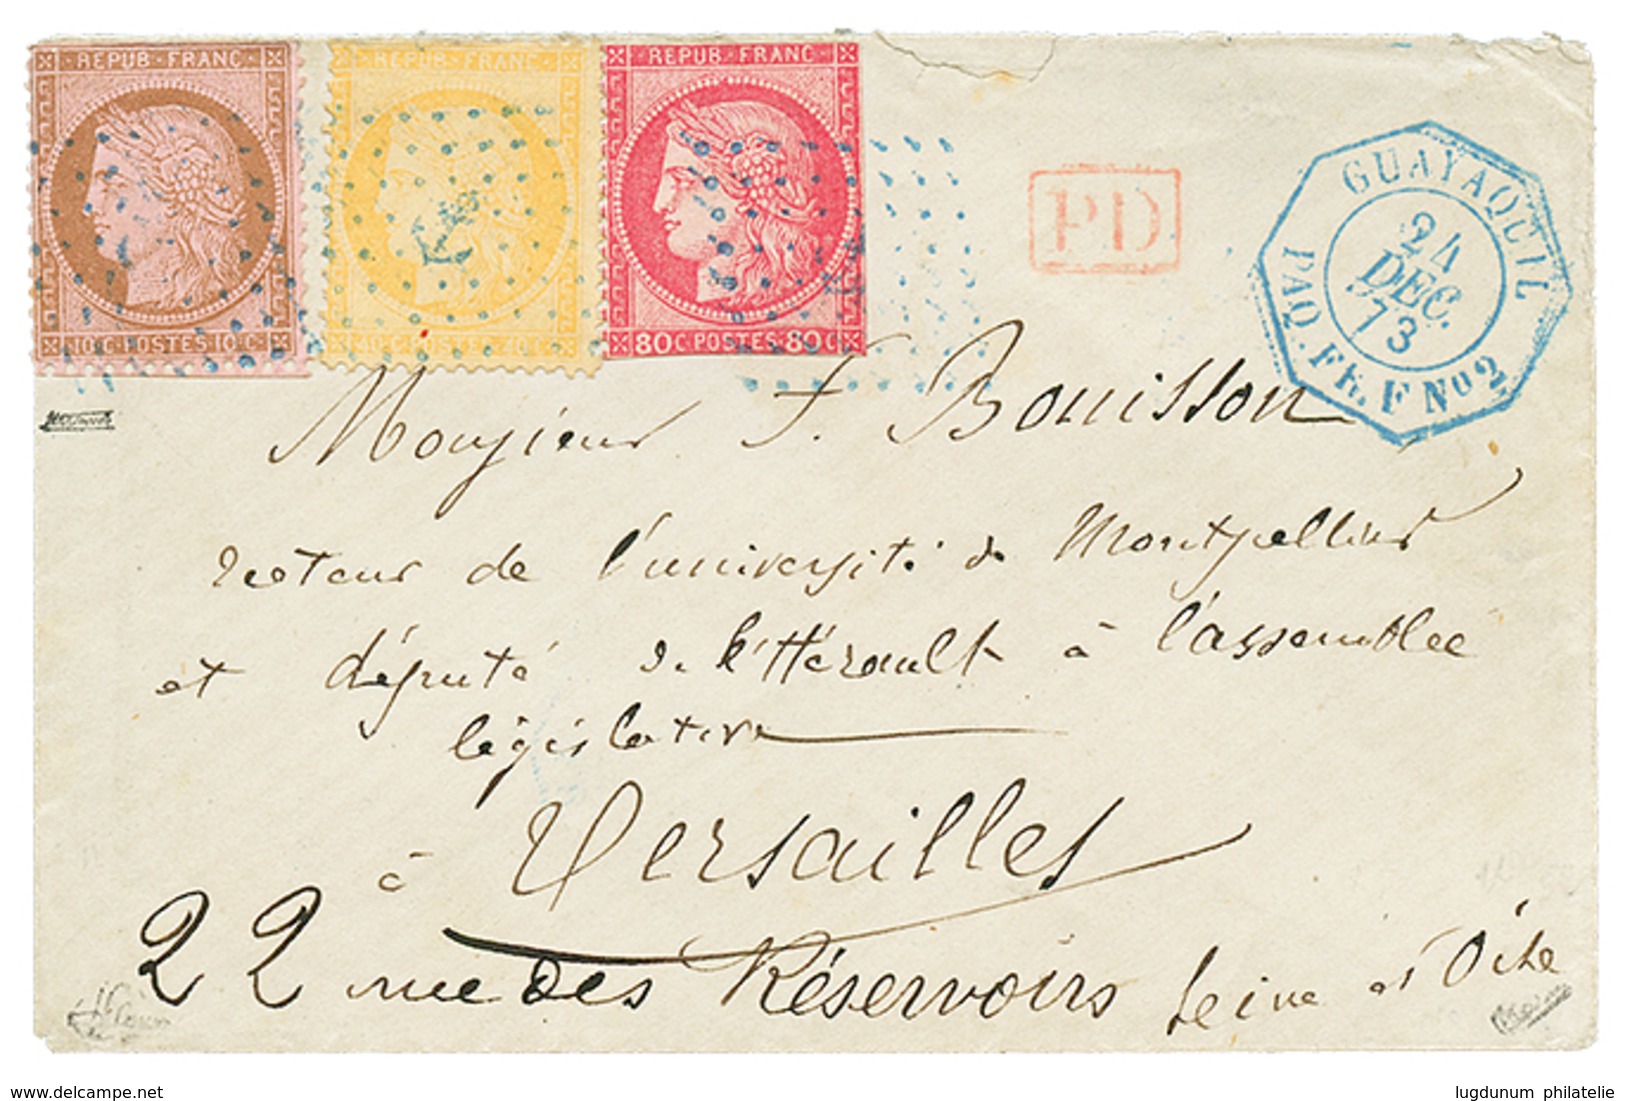 REPUB·FRANC
10 C·POSTES·10 C
REPUB·FRANC
40 C·POSTES·40 C
REPUB·FRANC
80 C·POSTES·80 C
PD
GUAYAQUIL
24
DEC.
73
PAQ. FR. F No 2
Monsieur F. Bouisson
recteur de l'université de Montpellier
et député de l'Hérault à l'assemblée
législative
à Versailles
22 rue des Réservoirs Seine et Oise
www.delcampe.net
lugdunum philatelie